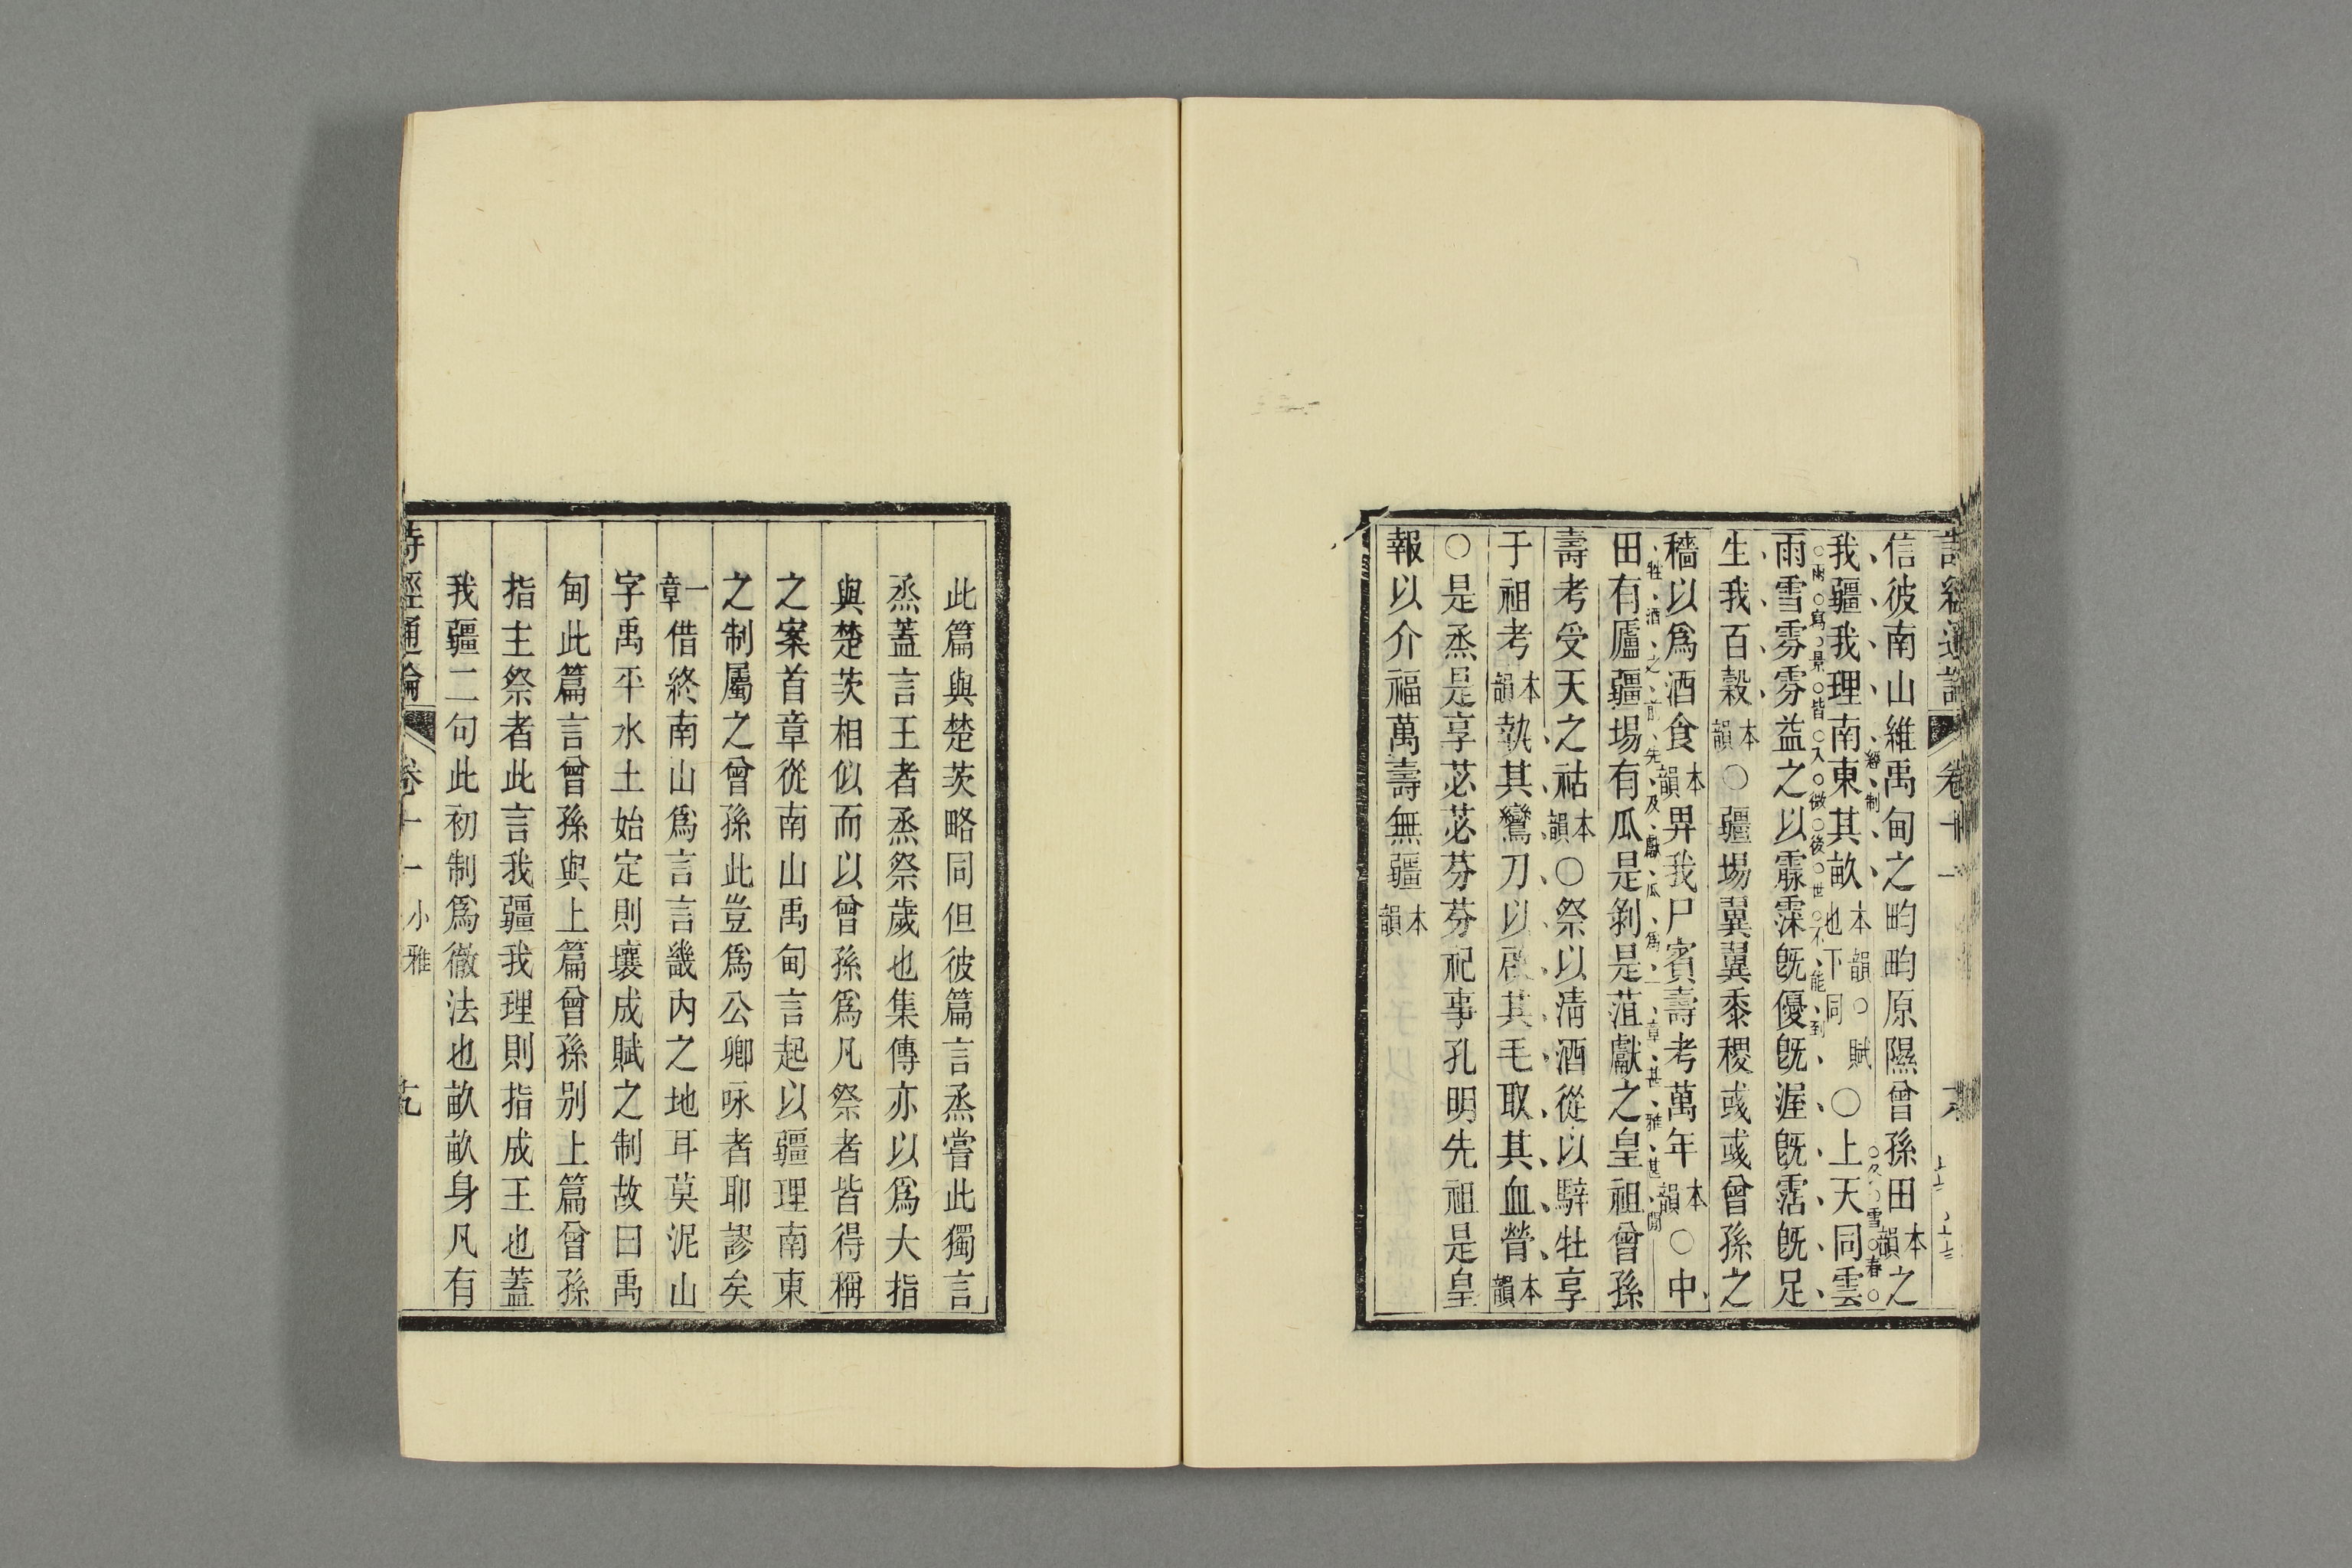 信彼南山維禹甸之畇畇原隰曾孫田本韻之
我疆我理南東其畝本韻○賦也下同○上天同雲
經制
久雪春
雨雪雰雰益之以霡霂旣優旣渥旣霑旣足
雨寫景皆入微後世不能到
生我百穀本韻○疆埸翼翼黍稷彧彧曾孫之
穡以爲酒食本韻畀我尸賓壽考萬年本韻○中
田有廬疆埸有瓜是剝是菹獻之皇祖曾孫
牲酒之前先及獻瓜爲一章甚雅甚閒
壽考受天之祜本韻○祭以淸酒從以騂牡享
于祖考本韻執其鸞刀以啟其毛取其血膋本韻
○是烝是享苾苾芬芬祀事孔明先祖是皇
報以介福萬壽無疆本韻
此篇與楚茨略同但彼篇言烝嘗此獨言
烝蓋言王者烝祭歲也集傳亦以爲大指
與楚茨相似而以曾孫爲凡祭者皆得稱
之案首章從南山禹甸言起以疆理南東
之制屬之曾孫此豈爲公卿咏者耶謬矣
一章借終南山爲言言畿內之地耳莫泥山
字禹平水土始定則壤成賦之制故曰禹
甸此篇言曾孫與上篇曾孫別上篇曾孫
指主祭者此言我疆我理則指成王也蓋
我疆二句此初制爲徹法也畝畝身凡有
詩經通論 卷十一 小雅